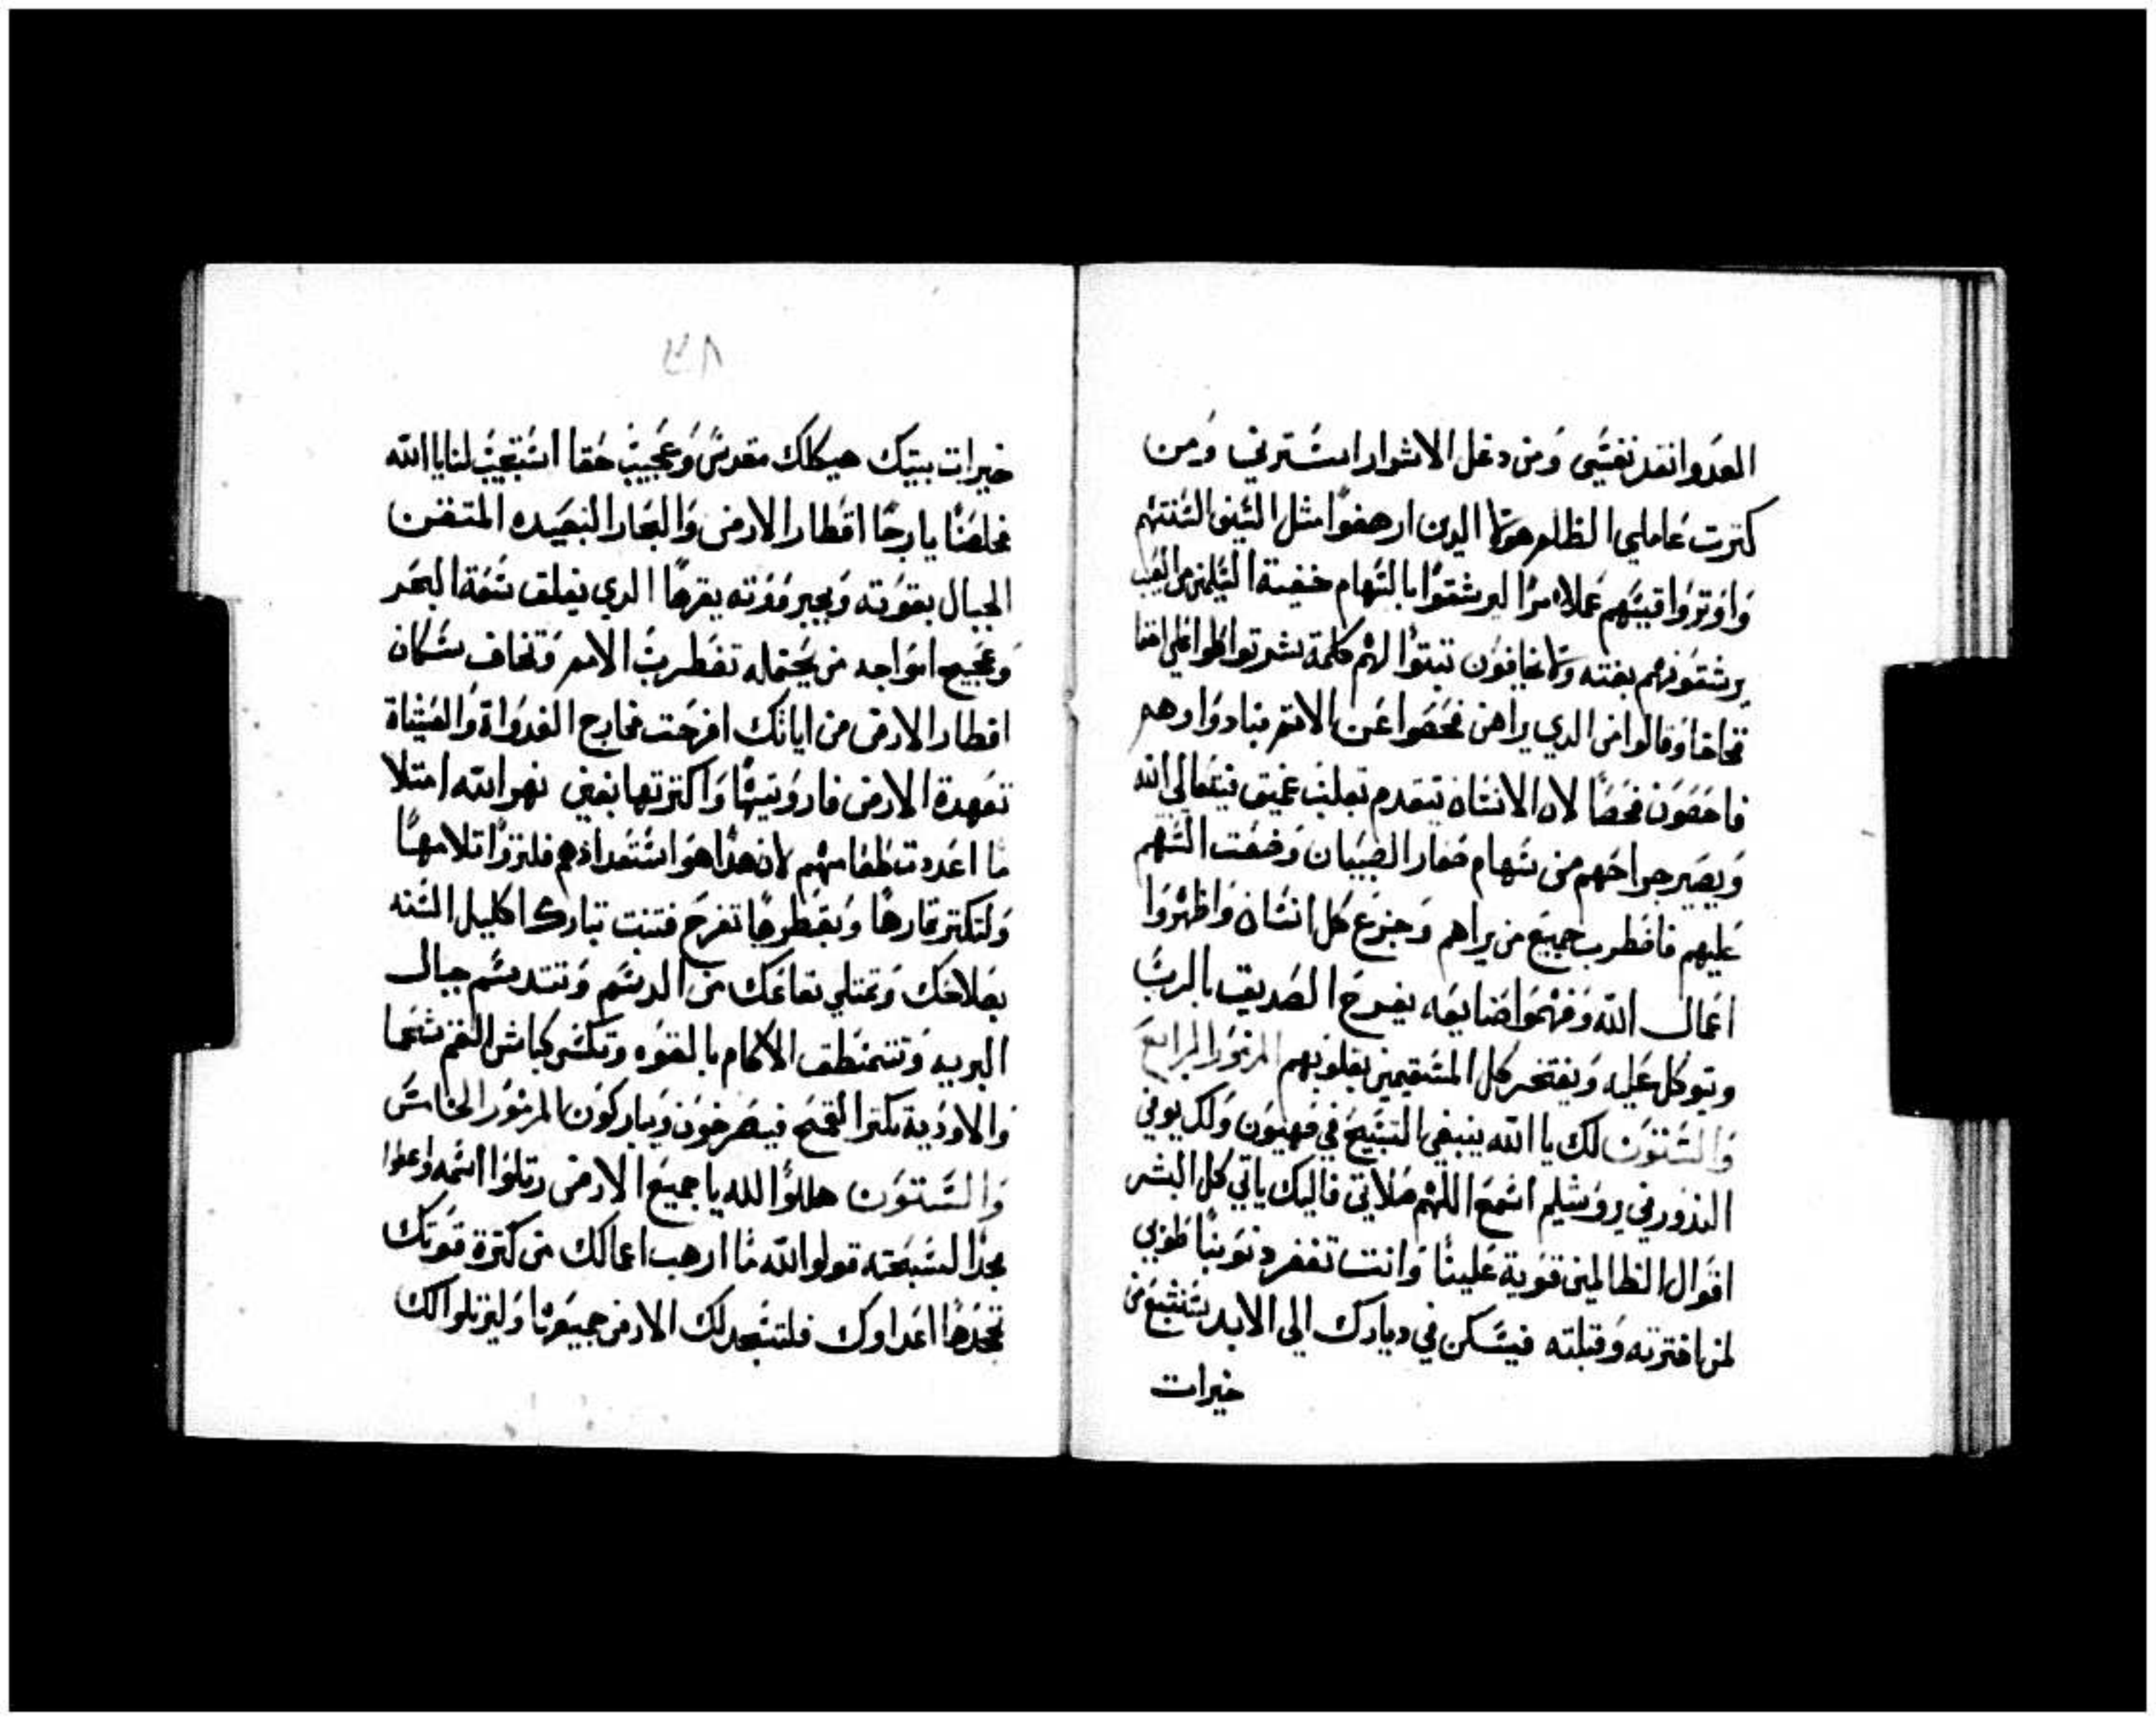 العدو انقد نفسي ومن دغل الاشرار استرني ومن
كترت عاملي الظلم هولا الدين ارهفوا مثل السيف السنتهم
واوتروا قسيهم عملا مرا ليرشقوا بالسهام خفية السليمين القلب
يرشقونهم بغته ولا يخافون تبتوا لهم كلمة تواطوا علي اخفا
فخاخا وقالوا من الدي يراهن فحصوا عن الاتم فبادوا وهم
فاحصون فحصا لان الانسان يتقدم بقلب عميق فيتعالي الله
ويصير جراحهم من سهام صغار الصبيان وضعفت السنهم
عليهم فاضطرب جميع من يراهم وجزع كل انسان واظهروا
اعمال الله وفهموا صنايعه يفرح الصديق بالرب
ويتوكل عليه ويفتخر كل المستقيمين بقلوبهم المزمور الرابع
والستون لك يا الله ينبغي التسبيح في صهيون ولك يوفي
الندور في يروشليم اسمع اللهم صلاتي فاليك ياتي كل البشر
اقوال الظالمين قوية علينا وانت تغفر دنوبنا طوبي
لمن اخترته وقبلته فيسكن في ديارك الي الابد سنشبع من
خيرات
٧٨
خيرات بيتك هيكلك مقدس وعجيب حقا استجيب لنا يا الله
مخلصنا يا رجا اقطار الارض والبحار البعيده المتقن
الجبال بقوته وبجبروته يقرها الدي يقلق سعة البحر
وعجيج امواجه من يحتمله تضطرب الامم وتخاف سكان
اقطار الارض من اياتك افرحت مخارج الغدواة والعشاة
تعهدة الارض فارويتها واكترتها بغني نهر الله امتلا
ما اعددت طعامهم لان هدا هو استعدادهم فلتروا اتلامها
ولتكتر تمارها وبقطرها تفرح فتنبت تبارك اكليل السنه
بصلاحك وتمتلي بقاعك من الدسم وتتدسم جبال
البريه وتتمنطق الاكام بالقوه وتكسي كباش الغنم شحما
والاودية تكتر القمح فيصرخون ويباركون المزمور الخامس
والستون هللوا لله يا جميع الارض رتلوا اسمه واعطوا
مجدا لسبحته قولوا لله ما ارهب اعمالك من كترة قوتك
تجحدها اعداوك فلتسجد لك الارض جميعها وليرتلوا لك